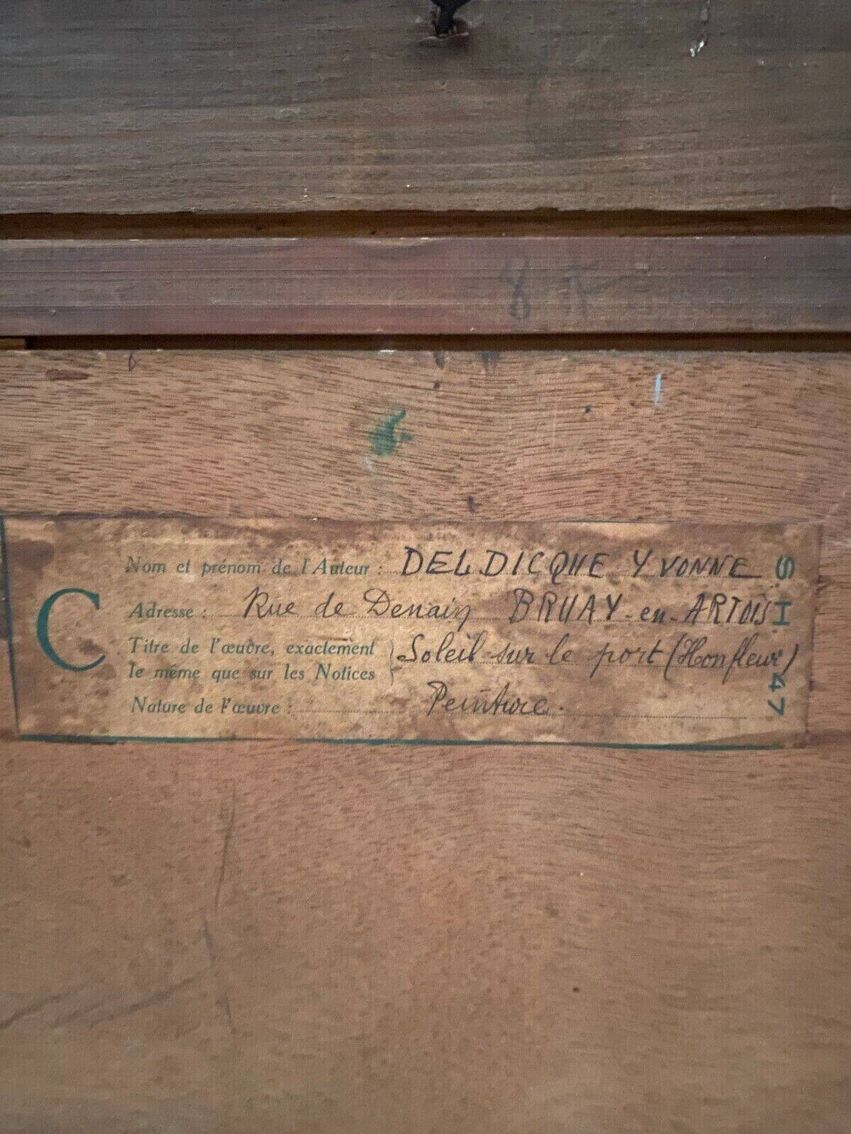 C
Nom et prénom de l'Auteur : DELDICQUE YVONNE
Adresse : Rue de Denain BRUAY-en-ARTOIS
Titre de l'œuvre, exactement le même que sur les Notices } Soleil sur le port (Honfleur)
Nature de l'œuvre : Peinture.
S.H. 47